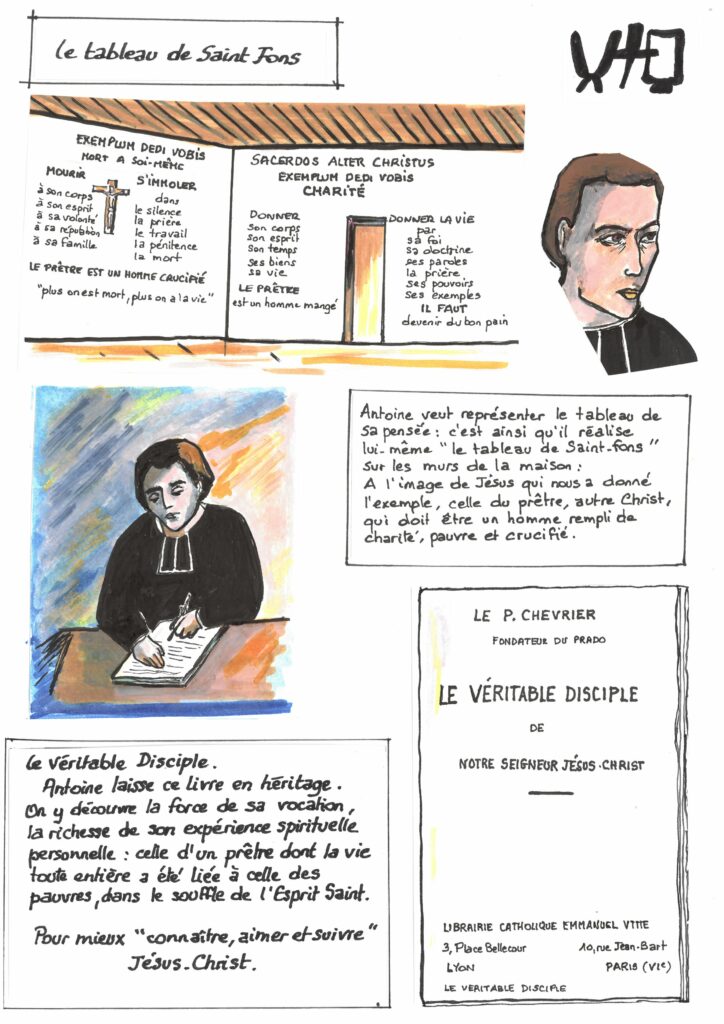 Le tableau de Saint Fons
EXEMPLUM DEDI VOBIS
MORT A SOI-MÊME
MOURIR
à son corps
à son esprit
à sa volonté
à sa réputation
à sa famille
S'IMMOLER
dans
le silence
la prière
le travail
la pénitence
la mort
LE PRÊTRE EST UN HOMME CRUCIFIÉ
"plus on est mort, plus on a la vie"
SACERDOS ALTER CHRISTUS
EXEMPLUM DEDI VOBIS
CHARITÉ
DONNER
son corps
son esprit
son temps
ses biens
sa vie
LE PRÊTRE
est un homme mangé
DONNER LA VIE
par
sa foi
sa doctrine
ses paroles
la prière
ses pouvoirs
ses exemples
IL FAUT
devenir du bon pain
Antoine veut représenter le tableau de
sa pensée : c'est ainsi qu'il réalise
lui-même "le tableau de Saint-fons"
sur les murs de la maison :
A l'image de Jésus qui nous a donné
l'exemple, celle du prêtre, autre Christ,
qui doit être un homme rempli de
charité, pauvre et crucifié.
LE P. CHEVRIER
FONDATEUR DU PRADO
LE VÉRITABLE DISCIPLE
DE
NOTRE SEIGNEUR JÉSUS-CHRIST
LIBRAIRIE CATHOLIQUE EMMANUEL VITTE
3, Place Bellecour 10, rue Jean-Bart
LYON PARIS (VIe)
LE VERITABLE DISCIPLE
Le Véritable Disciple.
Antoine laisse ce livre en héritage.
On y découvre la force de sa vocation,
la richesse de son expérience spirituelle
personnelle : celle d'un prêtre dont la vie
toute entière a été liée à celle des
pauvres, dans le souffle de l'Esprit Saint.
Pour mieux "connaître, aimer et suivre"
Jésus-Christ.